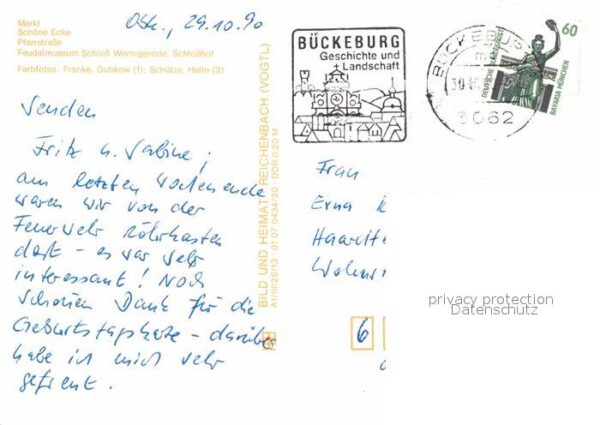 Markt
Schöne Ecke
Pfarrstraße
Feudalmuseum Schloß Wernigerode, Schloßhof
Farbfotos: Franke, Gutikow (1), Schütze, Halle (3)
29.10.90
Senden
Fritz u. Sabine;
am letzten Wochenende
waren wir von der
Feuerwehr
dort - es war sehr
interessant! Noch
schönen Dank für die
Geburtstagskarte - darüber
habe ich mich sehr
gefreut.
BILD UND HEIMAT REICHENBACH (VOGTL)
A1/III/26/13 01 07 0434/20 DDR 0,20 M
BÜCKEBURG
Geschichte und
+ Landschaft
BÜCKEBURG
30
3062
60
DEUTSCHE BUNDESPOST
BAVARIA MÜNCHEN
Frau
Erna
6
privacy protection
Datenschutz